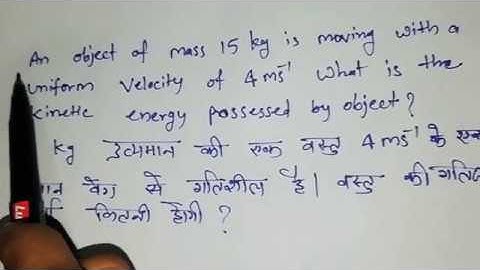 An object of mass 15 kg is moving with a
uniform velocity of 4 ms⁻¹ What is the
kinetic energy possessed by object?
kg द्रव्यमान की एक वस्तु 4 ms⁻¹ के
वेग से गतिशील है। वस्तु की
कितनी होगी ?